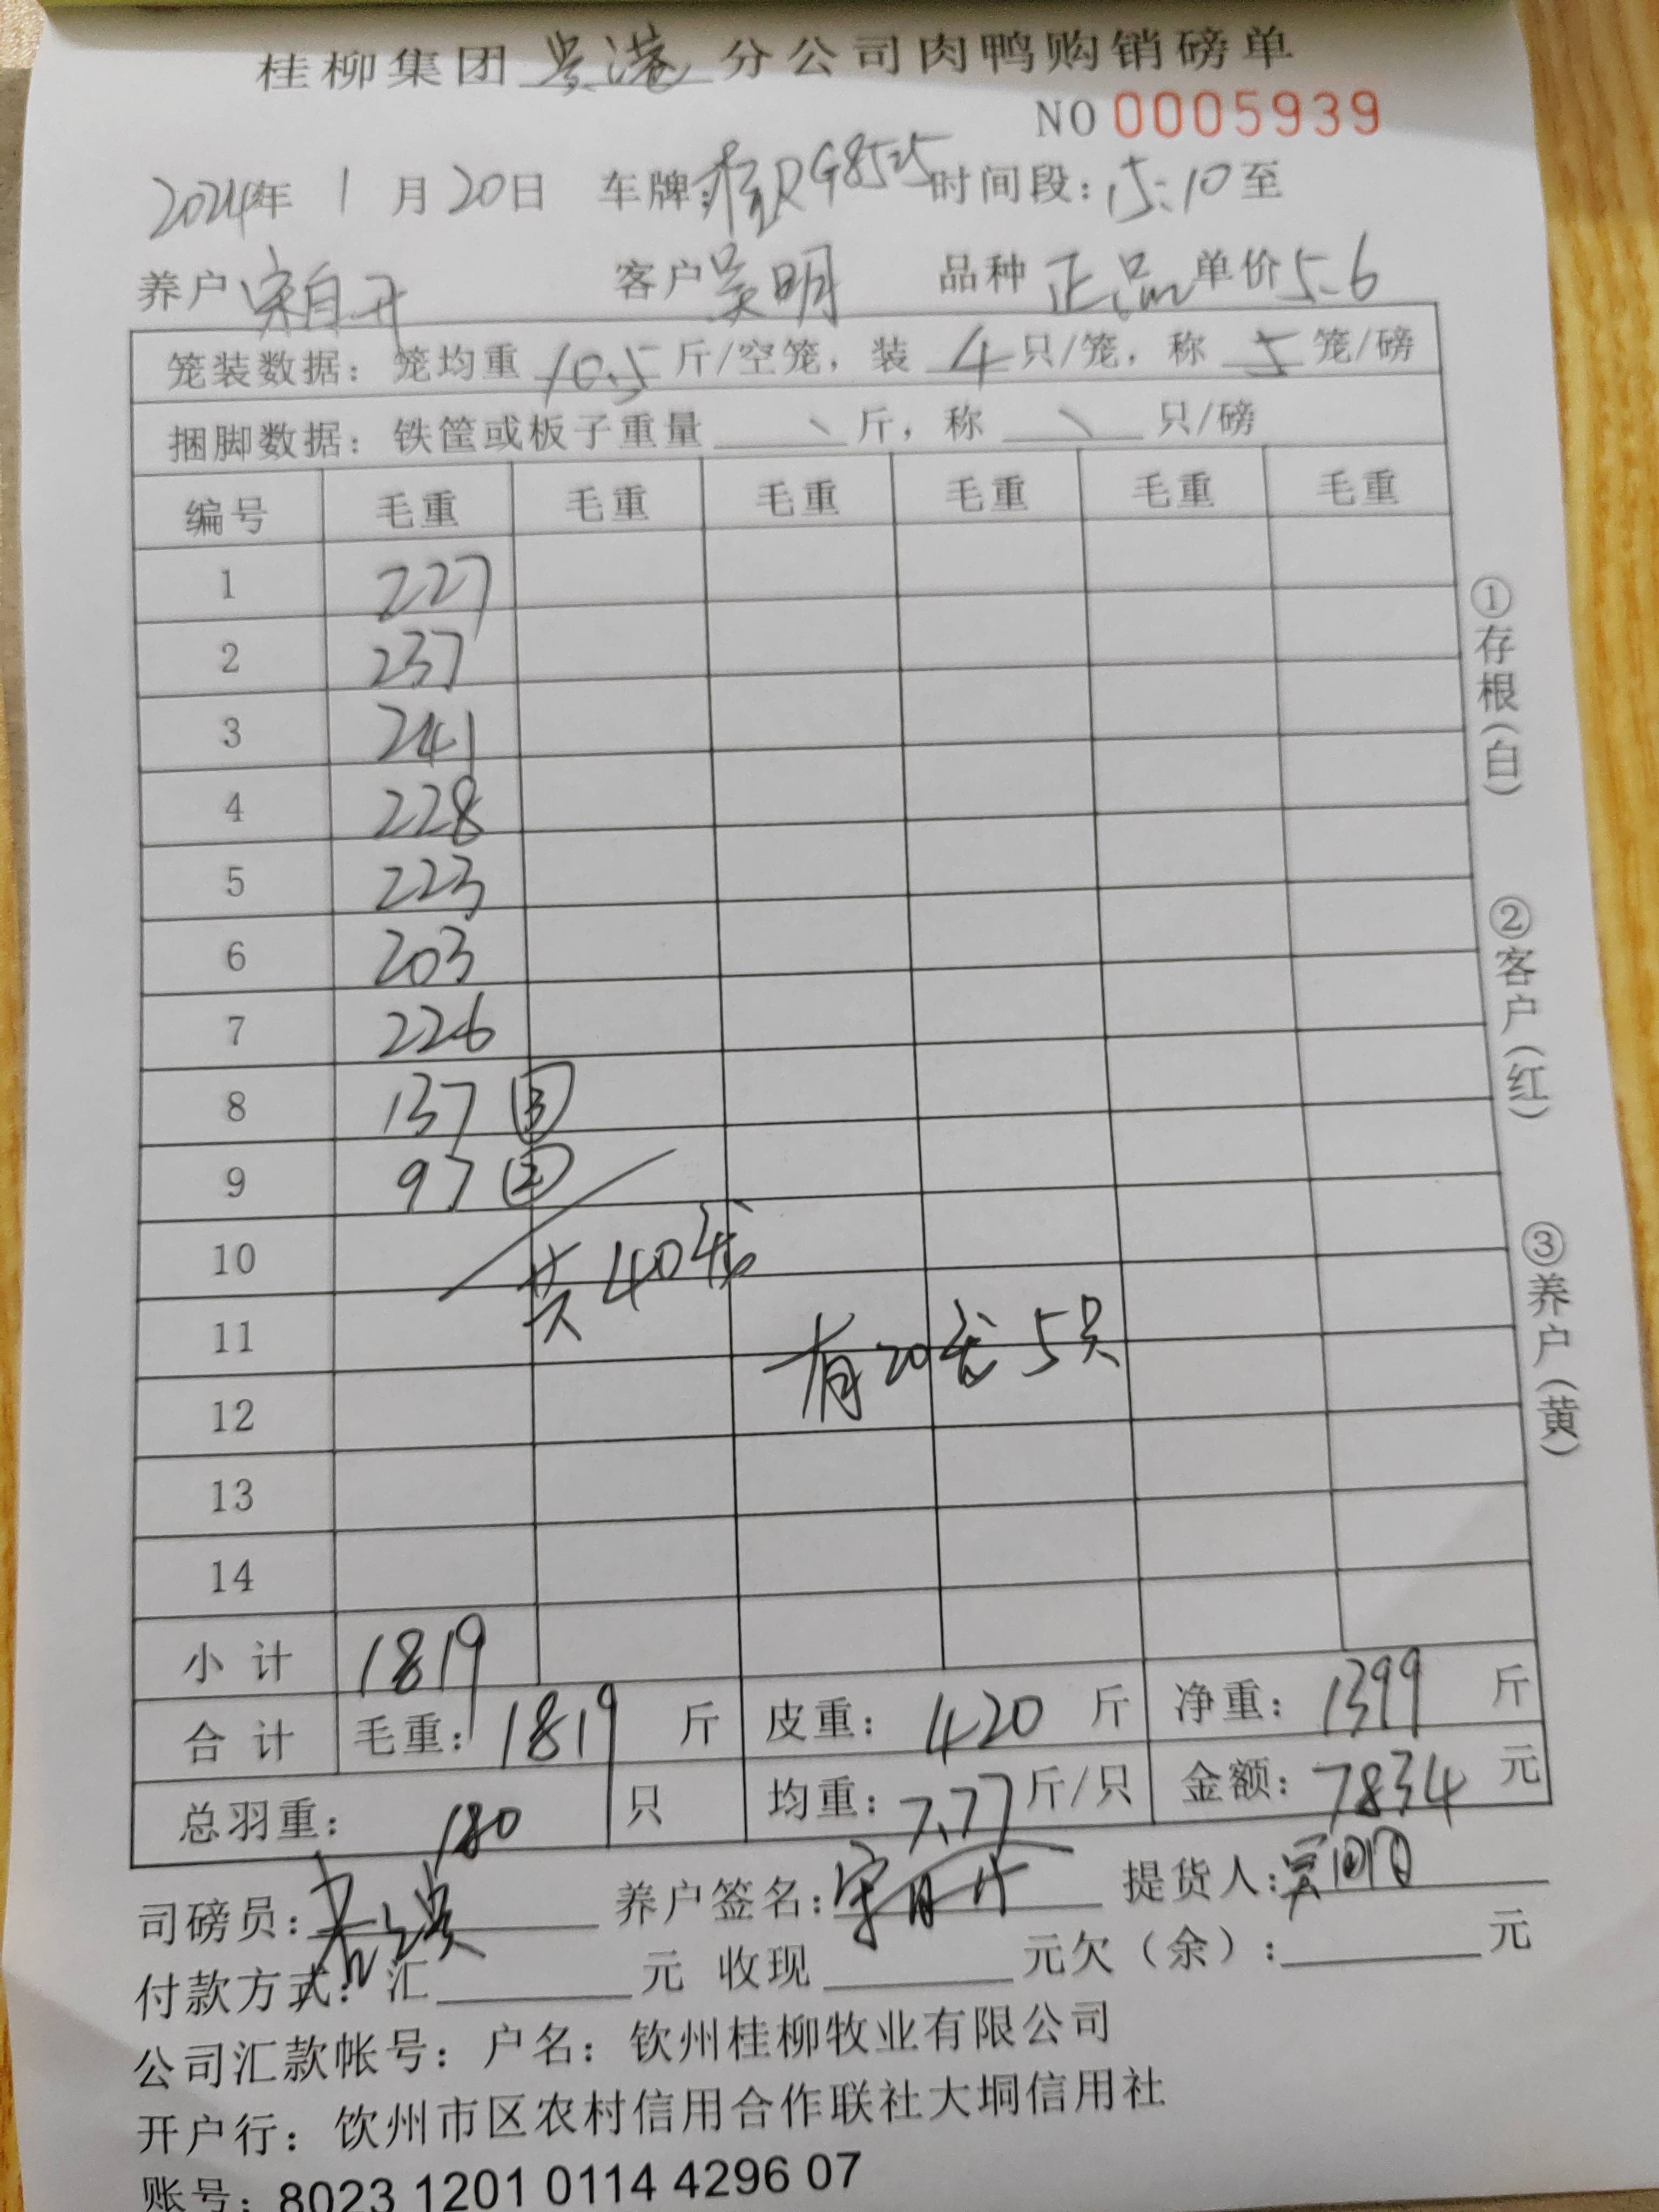 桂柳集团贵港分公司肉鸭购销磅单
NO 0005939
2024年 1月20日 车牌:桂RG8525 时间段:15:10至
养户 宋自开 客户 吴明 品种 正品 单价5.6
笼装数据:笼均重 10.5 斤/空笼,装 4 只/笼,称 5 笼/磅
捆脚数据:铁筐或板子重量 \ 斤,称 \ 只/磅
编号 毛重 毛重 毛重 毛重 毛重 毛重
1 227
2 237
3 241
4 228
5 223
6 203
7 226
8 137 ③
9 97 ②
10
共40笼
11
有20笼5只
12
13
14
小计 1819
合计 毛重:1819 斤 皮重:420 斤 净重:1399 斤
总羽重:180 只 均重:7.77斤/只 金额:7834元
司磅员: 养户签名:宋自开 提货人:吴明
付款方式:汇 元 收现 元欠(余): 元
公司汇款帐号:户名:钦州桂柳牧业有限公司
开户行:钦州市区农村信用合作联社大垌信用社
账号:8023 1201 0114 4296 07
①存根(白)
②客户(红)
③养户(黄)